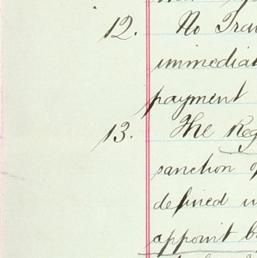 12. No Tran
immediat
payment
13. The Reg
sanction of
defined
appoint b